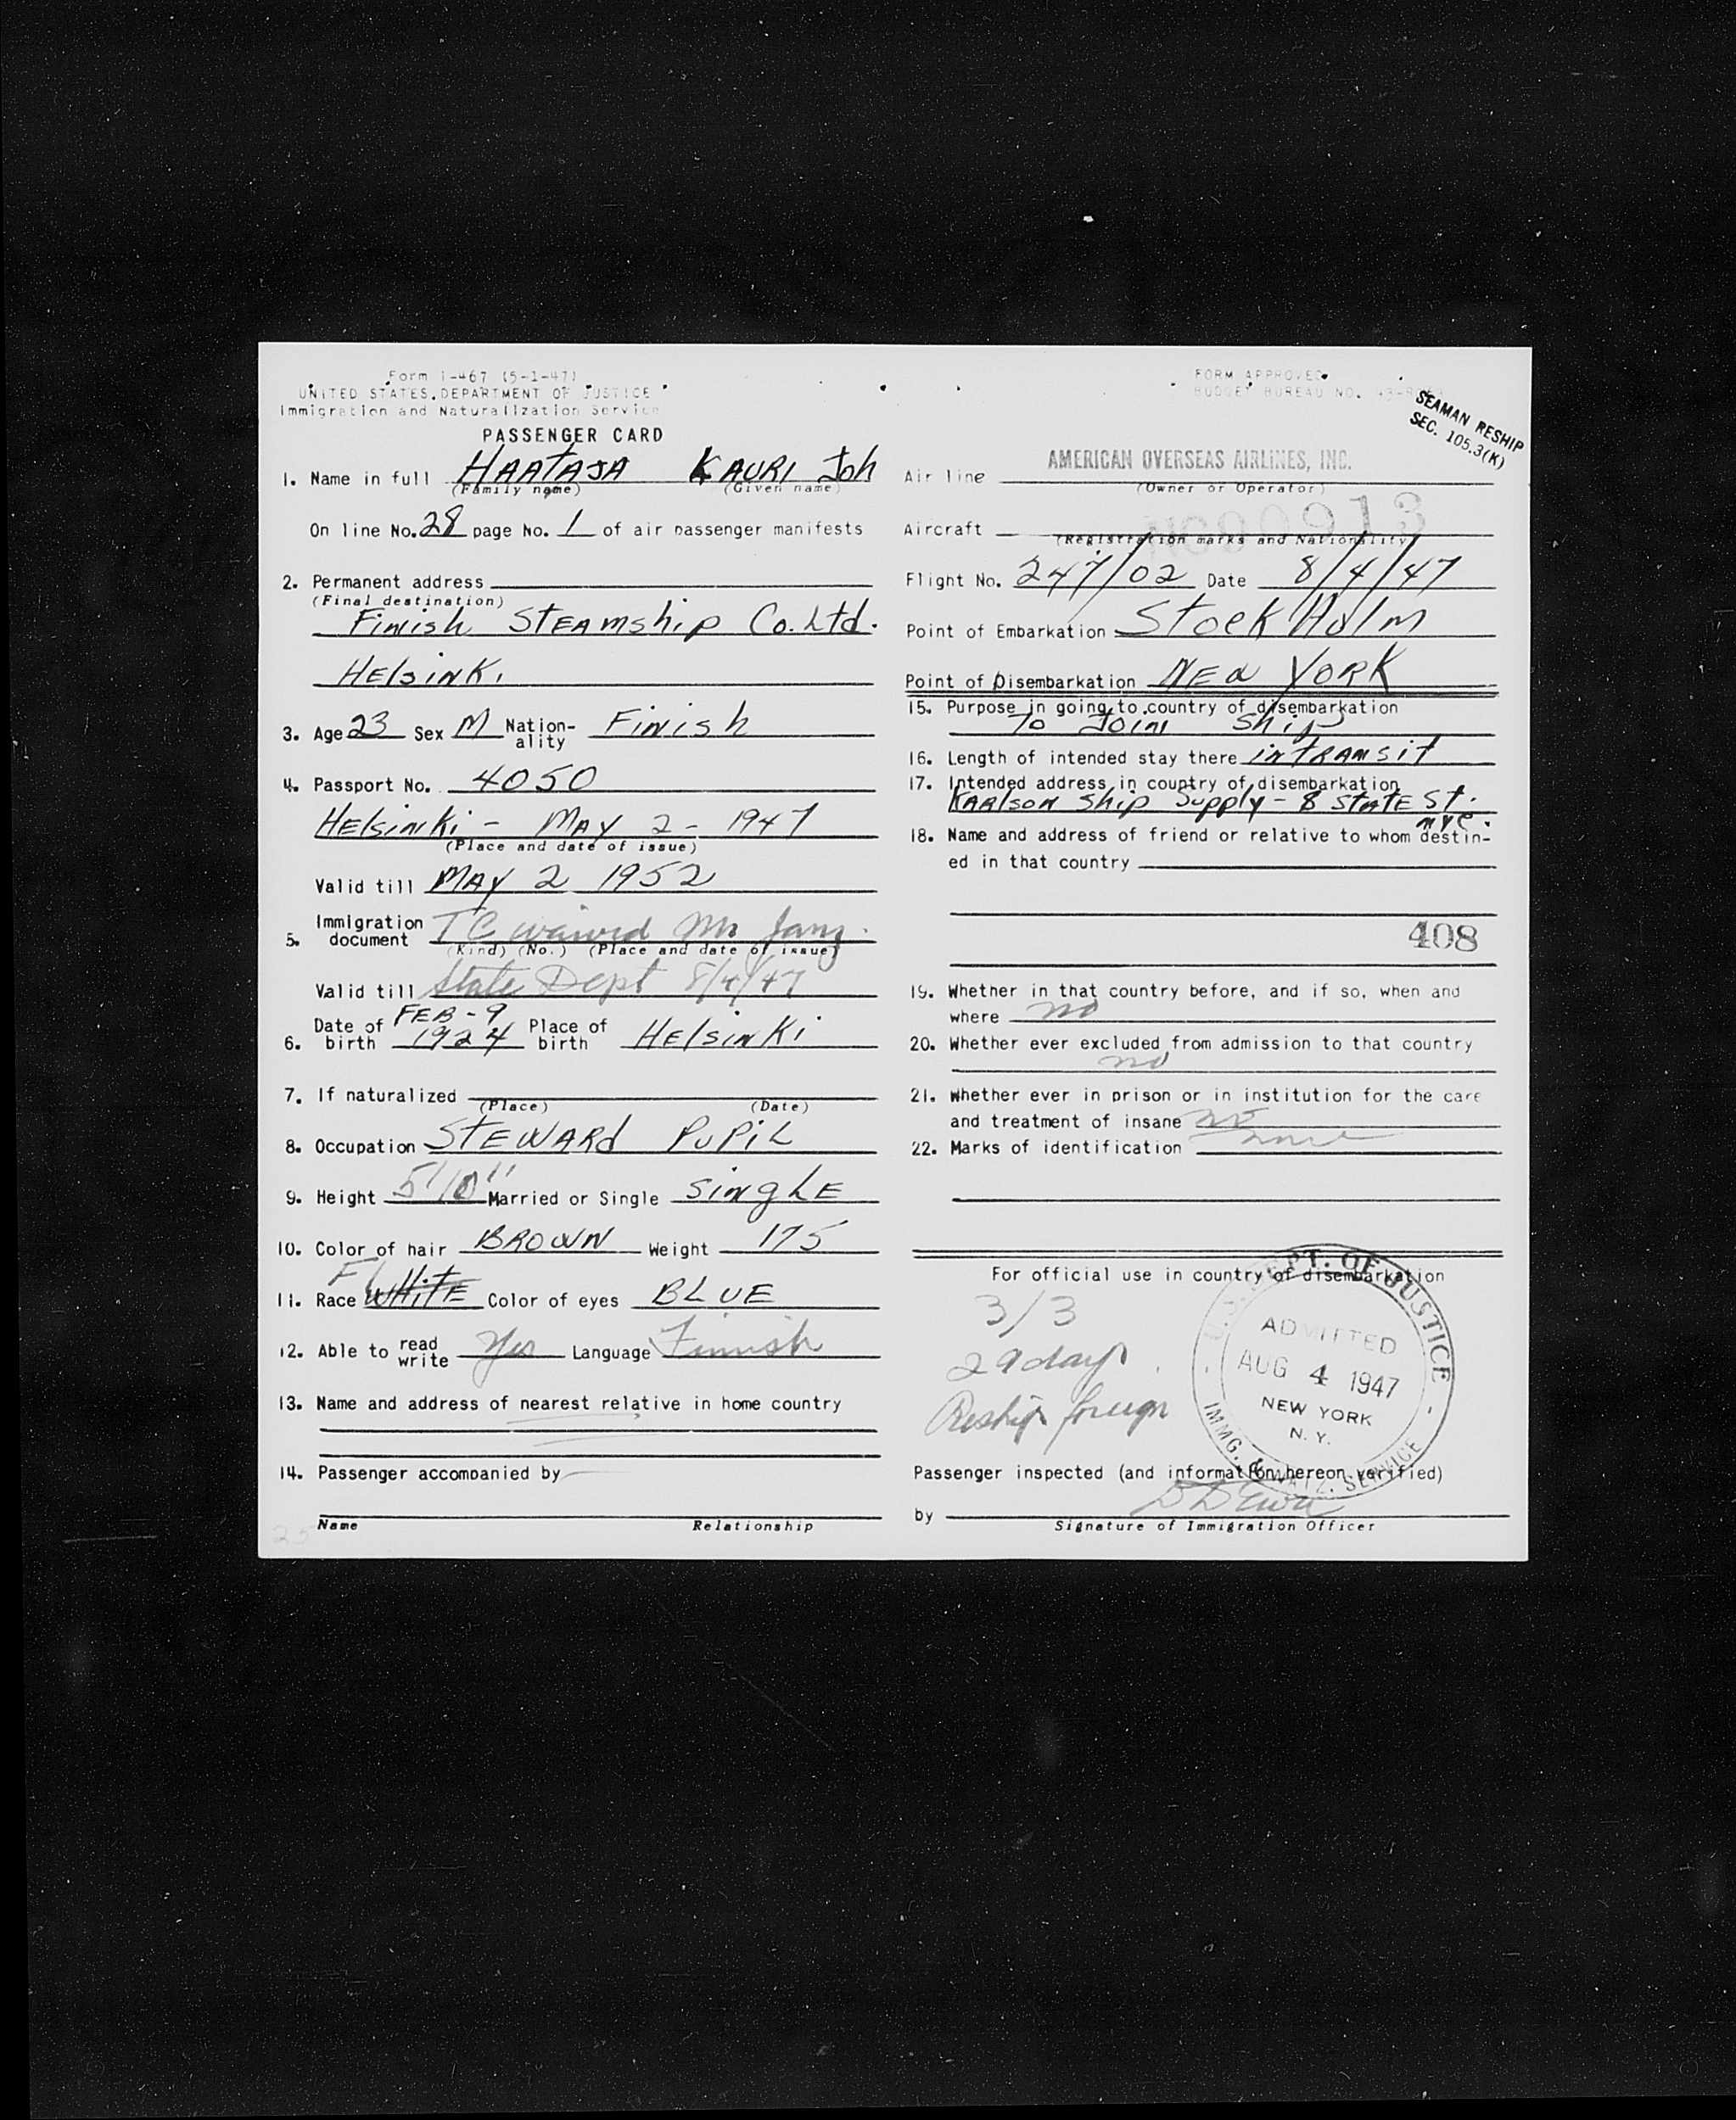 Form I-467 (5-1-47)
UNITED STATES DEPARTMENT OF JUSTICE
Immigration and Naturalization Service
PASSENGER CARD
1. Name in full HAATAJA KAURI Joh
(Family name) (Given name)
On line No. 28 page No. 1 of air passenger manifests
2. Permanent address
(Final destination)
Finish STEAMship Co. Ltd.
HElsinKi
3. Age 23 Sex M Nation-ality Finish
4. Passport No. 4050
HElsinki - MAY 2 - 1947
(Place and date of issue)
Valid till MAY 2 1952
5. Immigration document TC waived Mr
(Kind) (No.) (Place and date of issue)
Valid till State Dept 8/4/47
6. Date of birth FEB-9 1924 Place of birth HElsinKi
7. If naturalized
(Place) (Date)
8. Occupation STEWARd PUPiL
9. Height 5'10" Married or Single SingLE
10. Color of hair BROWN Weight 175
11. Race WHiTE Color of eyes BLUE
12. Able to read write Yes Language Finnish
13. Name and address of nearest relative in home country
14. Passenger accompanied by
Name Relationship
FORM APPROVED
BUDGET BUREAU NO.
SEAMAN RESHIP
SEC. 105.3(K)
Air line AMERICAN OVERSEAS AIRLINES, INC.
(Owner or Operator)
Aircraft NC90913
(Registration marks and Nationality)
Flight No. 247/02 Date 8/4/47
Point of Embarkation StockHolm
Point of Disembarkation NEW YORK
15. Purpose in going to country of disembarkation
To Join Ship
16. Length of intended stay there inTRAMSiT
17. Intended address in country of disembarkation
KARlson Ship Supply - 8 STATE ST.
nyc.
18. Name and address of friend or relative to whom destin-
ed in that country
408
19. Whether in that country before, and if so, when and
where no
20. Whether ever excluded from admission to that country
no
21. Whether ever in prison or in institution for the care
and treatment of insane no
22. Marks of identification none
For official use in country of disembarkation
3/3
29 days
Reship foreign
U.S. DEPT. OF JUSTICE
ADMITTED
AUG 4 1947
NEW YORK
N. Y.
IMMG. & NATZ. SERVICE
Passenger inspected (and information hereon verified)
by
Signature of Immigration Officer